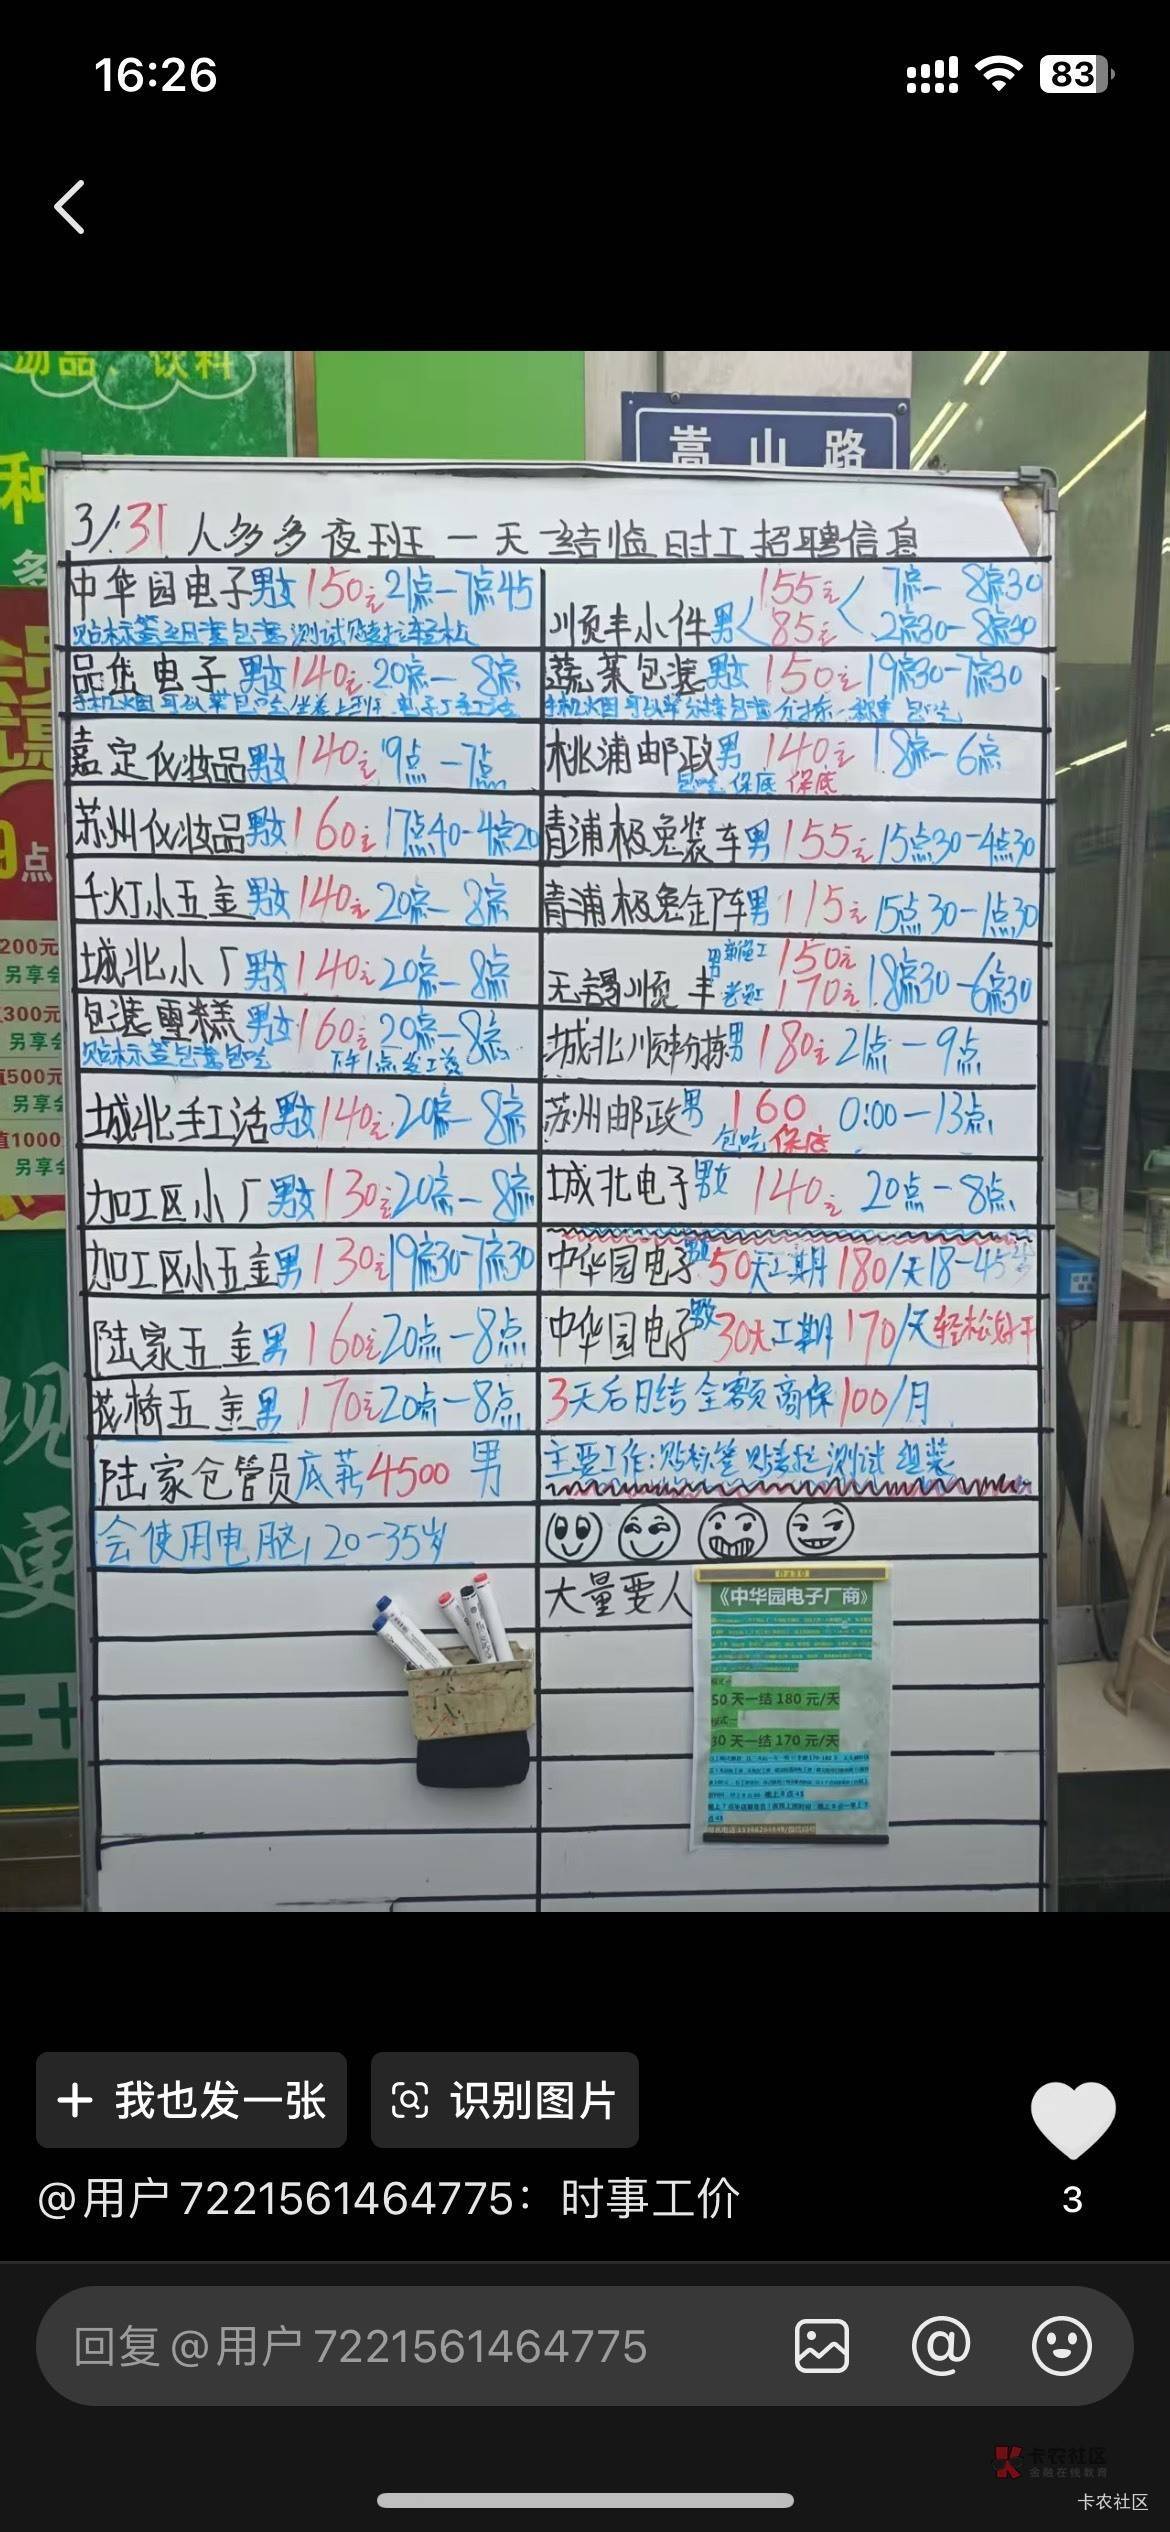 16:26
83
汤品、饮料
嵩山路
和
多
9点
200元
另享会
300元
另享会
值500元
另享会
值1000
另享会
现
更
3/31 人多多夜班一天一结临时工招聘信息
中华园电子男女150元21点-7点45
品岱电子男女140元20点-8点
嘉定化妆品男女140元19点-7点
苏州化妆品男女160元17点40-4点20
千灯小五金男女140元20点-8点
城北小厂男女140元20点-8点
包装雪糕男女160元20点-8点
贴标签包装包吃 下午1点发工资
城北手工活男女140元20点-8点
加工区小厂男女130元20点-8点
加工区小五金男130元19点30-7点30
陆家五金男160元20点-8点
茂桥五金男170元20点-8点
陆家仓管员底薪4500男
会使用电脑,20-35岁
川顺丰小件男
155元 7点-8点30
85元 2点30-8点30
蔬菜包装男女150元19点30-7点30
桃浦邮政男140元18点-6点
包吃 保底 保底
青浦极兔装车男155元15点30-4点30
青浦极兔卸车男115元15点30-1点30
无锡顺丰
150元
170元18点30-6点30
城北顺丰分拣男180元21点-9点
苏州邮政男160 0:00-13点
包吃 保底
城北电子男女140元20点-8点
中华园电子男女50天工期180/天18-45
中华园电子男女30天工期170/天轻松好干
3天后月结全额商保100/月
主要工作:贴标签 测试 组装
大量要人
《中华园电子厂商》
50天一结180元/天
30天一结170元/天
我也发一张
识别图片
3
@用户7221561464775：时事工价
回复@用户7221561464775
卡农社区
金融在线教育
卡农社区